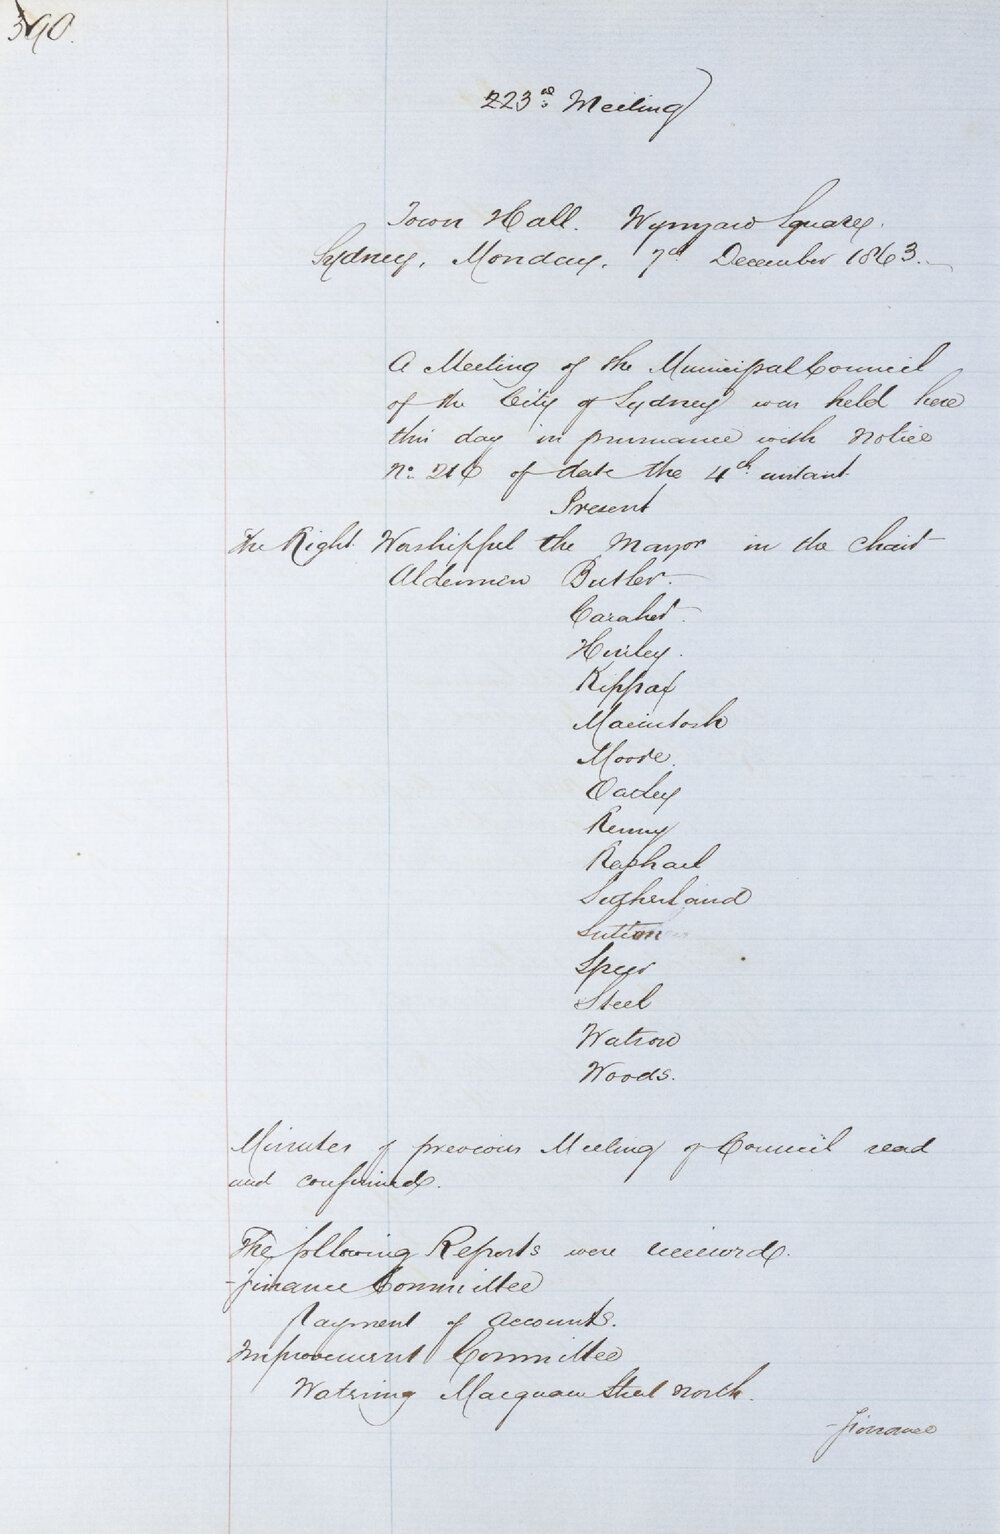 390.
223rd Meeting
Town Hall. Wynyard Square.
Sydney, Monday, 7th December 1863.
A Meeting of the Municipal Council
of the City of Sydney was held here
this day in pursuance with notice
No. 216 of date the 4th instant
Present
The Right Worshipful the Mayor in the chair
Aldermen Butler.
Caraher.
Hurley.
Kippax
Macintosh
Moore.
Oatley
Renny
Raphael
Sutherland
Sutton
Speer
Steel
Watson
Woods.
Minutes of previous Meeting of Council read
and confirmed.
The following Reports were received.
Finance Committee
Payment of Accounts.
Improvement Committee
Watering Macquarie Street North.
Finance